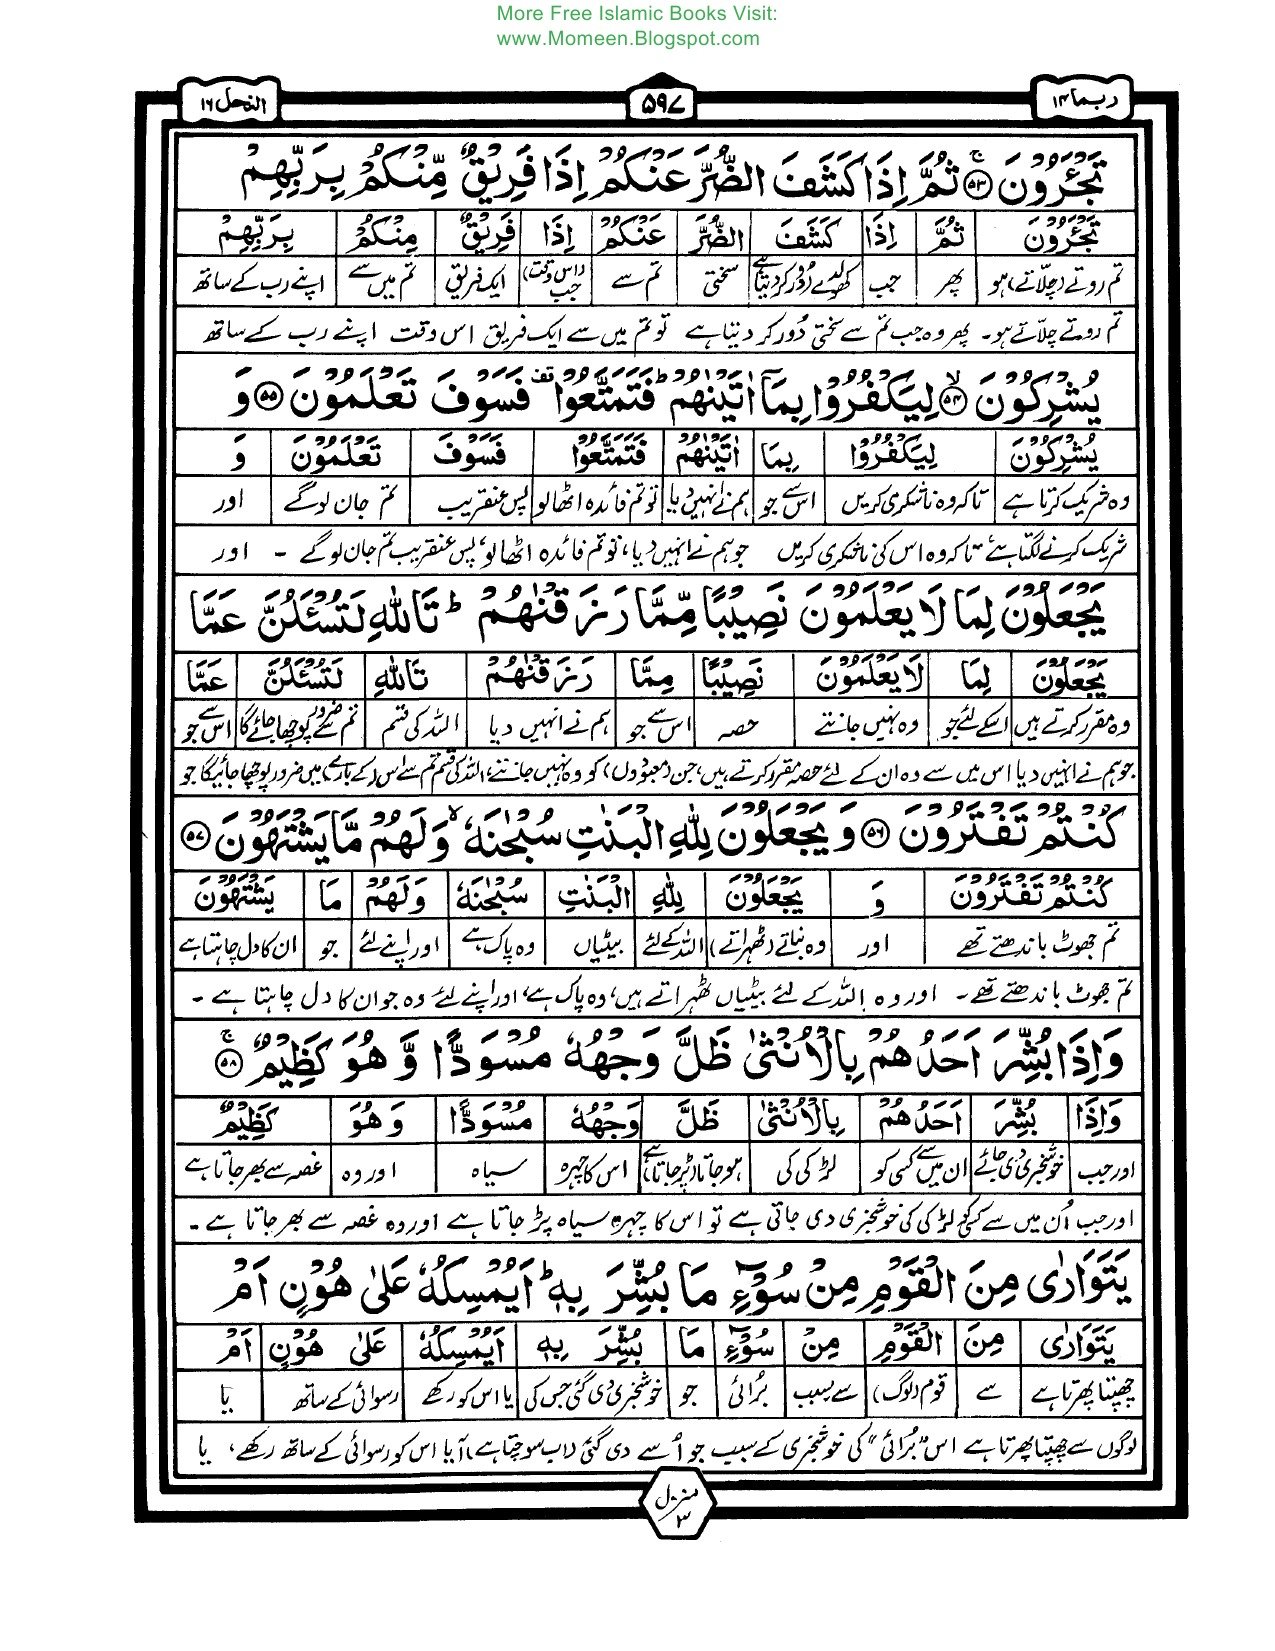 More Free Islamic Books Visit:
www.Momeen.Blogspot.com
ربما ۱۴
۵۹۷
النحل ۱۶
تَجْـَٔرُوْنَ ﴿۵۳﴾ۚ ثُمَّ اِذَا كَشَفَ الضُّرَّ عَنْكُمْ اِذَا فَرِيْقٌ مِّنْكُمْ بِرَبِّهِمْ
تَجْـَٔرُوْنَ ثُمَّ اِذَا كَشَفَ الضُّرَّ عَنْكُمْ اِذَا فَرِيْقٌ مِنْكُمْ بِرَبِّهِمْ
تم روتے (چلّاتے) ہو پھر جب کھولدے (دُور کر دیتا) ہے سختی تم سے (اس وقت) جب ایک فریق تم میں سے اپنے رب کے ساتھ
تم روتے چلّاتے ہو۔ پھر وہ جب تم سے سختی دُور کر دیتا ہے تو تم میں سے ایک فریق اس وقت اپنے رب کے ساتھ
يُشْرِكُوْنَ ﴿۵۴﴾ۙ لِيَكْفُرُوْا بِمَآ اٰتَيْنٰهُمْ ؕ فَتَمَتَّعُوْا ۫ فَسَوْفَ تَعْلَمُوْنَ ﴿۵۵﴾ وَ
يُشْرِكُوْنَ لِيَكْفُرُوْا بِمَا اٰتَيْنٰهُمْ فَتَمَتَّعُوْا فَسَوْفَ تَعْلَمُوْنَ وَ
وہ شریک کرتا ہے تاکہ وہ ناشکری کریں اس سے جو ہم نے انہیں دیا تو تم فائدہ اٹھالو پس عنقریب تم جان لوگے اور
شریک کرنے لگتا ہے تاکہ وہ اس کی ناشکری کریں جو ہم نے انہیں دیا، تو تم فائدہ اٹھا لو، پس عنقریب تم جان لوگے ۔ اور
يَجْعَلُوْنَ لِمَا لَا يَعْلَمُوْنَ نَصِيْبًا مِّمَّا رَزَقْنٰهُمْ ؕ تَاللّٰهِ لَتُسْـَٔلُنَّ عَمَّا
يَجْعَلُوْنَ لِمَا لَا يَعْلَمُوْنَ نَصِيْبًا مِمَّا رَزَقْنٰهُمْ تَاللّٰهِ لَتُسْـَٔلُنَّ عَمَّا
وہ مقرر کرتے ہیں اسکے لئے جو وہ نہیں جانتے حصہ اس سے جو ہم نے انہیں دیا اللہ کی قسم تم سے ضرور پوچھا جائے گا اس سے جو
جو ہم نے انہیں دیا اس میں سے وہ ان کے لئے حصہ مقرر کرتے ہیں، جن (معبودوں) کو وہ نہیں جانتے، اللہ کی قسم تم سے اس (کے بارے) میں ضرور پوچھا جائیگا جو
كُنْتُمْ تَفْتَرُوْنَ ﴿۵۶﴾ وَ يَجْعَلُوْنَ لِلّٰهِ الْبَنٰتِ سُبْحٰنَهٗ ۙ وَلَهُمْ مَّا يَشْتَهُوْنَ ﴿۵۷﴾
كُنْتُمْ تَفْتَرُوْنَ وَ يَجْعَلُوْنَ لِلّٰهِ الْبَنٰتِ سُبْحٰنَهٗ وَلَهُمْ مَا يَشْتَهُوْنَ
تم جھوٹ باندھتے تھے اور وہ بناتے (ٹھہراتے) اللہ کے لئے بیٹیاں وہ پاک ہے اور اپنے لئے جو ان کا دل چاہتا ہے
تم جھوٹ باندھتے تھے۔ اور وہ اللہ کے لئے بیٹیاں ٹھہراتے ہیں، وہ پاک ہے، اور اپنے لئے وہ جو ان کا دل چاہتا ہے ۔
وَاِذَا بُشِّرَ اَحَدُهُمْ بِالْاُنْثٰى ظَلَّ وَجْهُهٗ مُسْوَدًّا وَّ هُوَ كَظِيْمٌ ﴿۵۸﴾ۚ
وَاِذَا بُشِّرَ اَحَدُهُمْ بِالْاُنْثٰى ظَلَّ وَجْهُهٗ مُسْوَدًّا وَهُوَ كَظِيْمٌ
اور جب خوشخبری دی جائے ان میں سے کسی کو لڑکی کی ہو جاتا (پڑ جاتا) ہے اس کا چہرہ سیاہ اور وہ غصہ سے بھر جاتا ہے
اور جب اُن میں سے کسی کو لڑکی کی خوشخبری دی جاتی ہے تو اس کا چہرہ سیاہ پڑ جاتا ہے اور وہ غصہ سے بھر جاتا ہے ۔
يَتَوَارٰى مِنَ الْقَوْمِ مِنْ سُوْٓءِ مَا بُشِّرَ بِهٖ ؕ اَيُمْسِكُهٗ عَلٰى هُوْنٍ اَمْ
يَتَوَارٰى مِنَ الْقَوْمِ مِنْ سُوْٓءِ مَا بُشِّرَ بِهٖ اَيُمْسِكُهٗ عَلٰى هُوْنٍ اَمْ
چھپتا پھرتا ہے سے قوم (لوگ) سے بسبب بُرائی جو خوشخبری دی گئی جس کی یا اس کو رکھے رسوائی کے ساتھ یا
لوگوں سے چھپتا پھرتا ہے اس "بُرائی" کی خوشخبری کے سبب جو اُسے دی گئی (اب سوچتا ہے) آیا اس کو رسوائی کے ساتھ رکھے، یا
منزل ۳